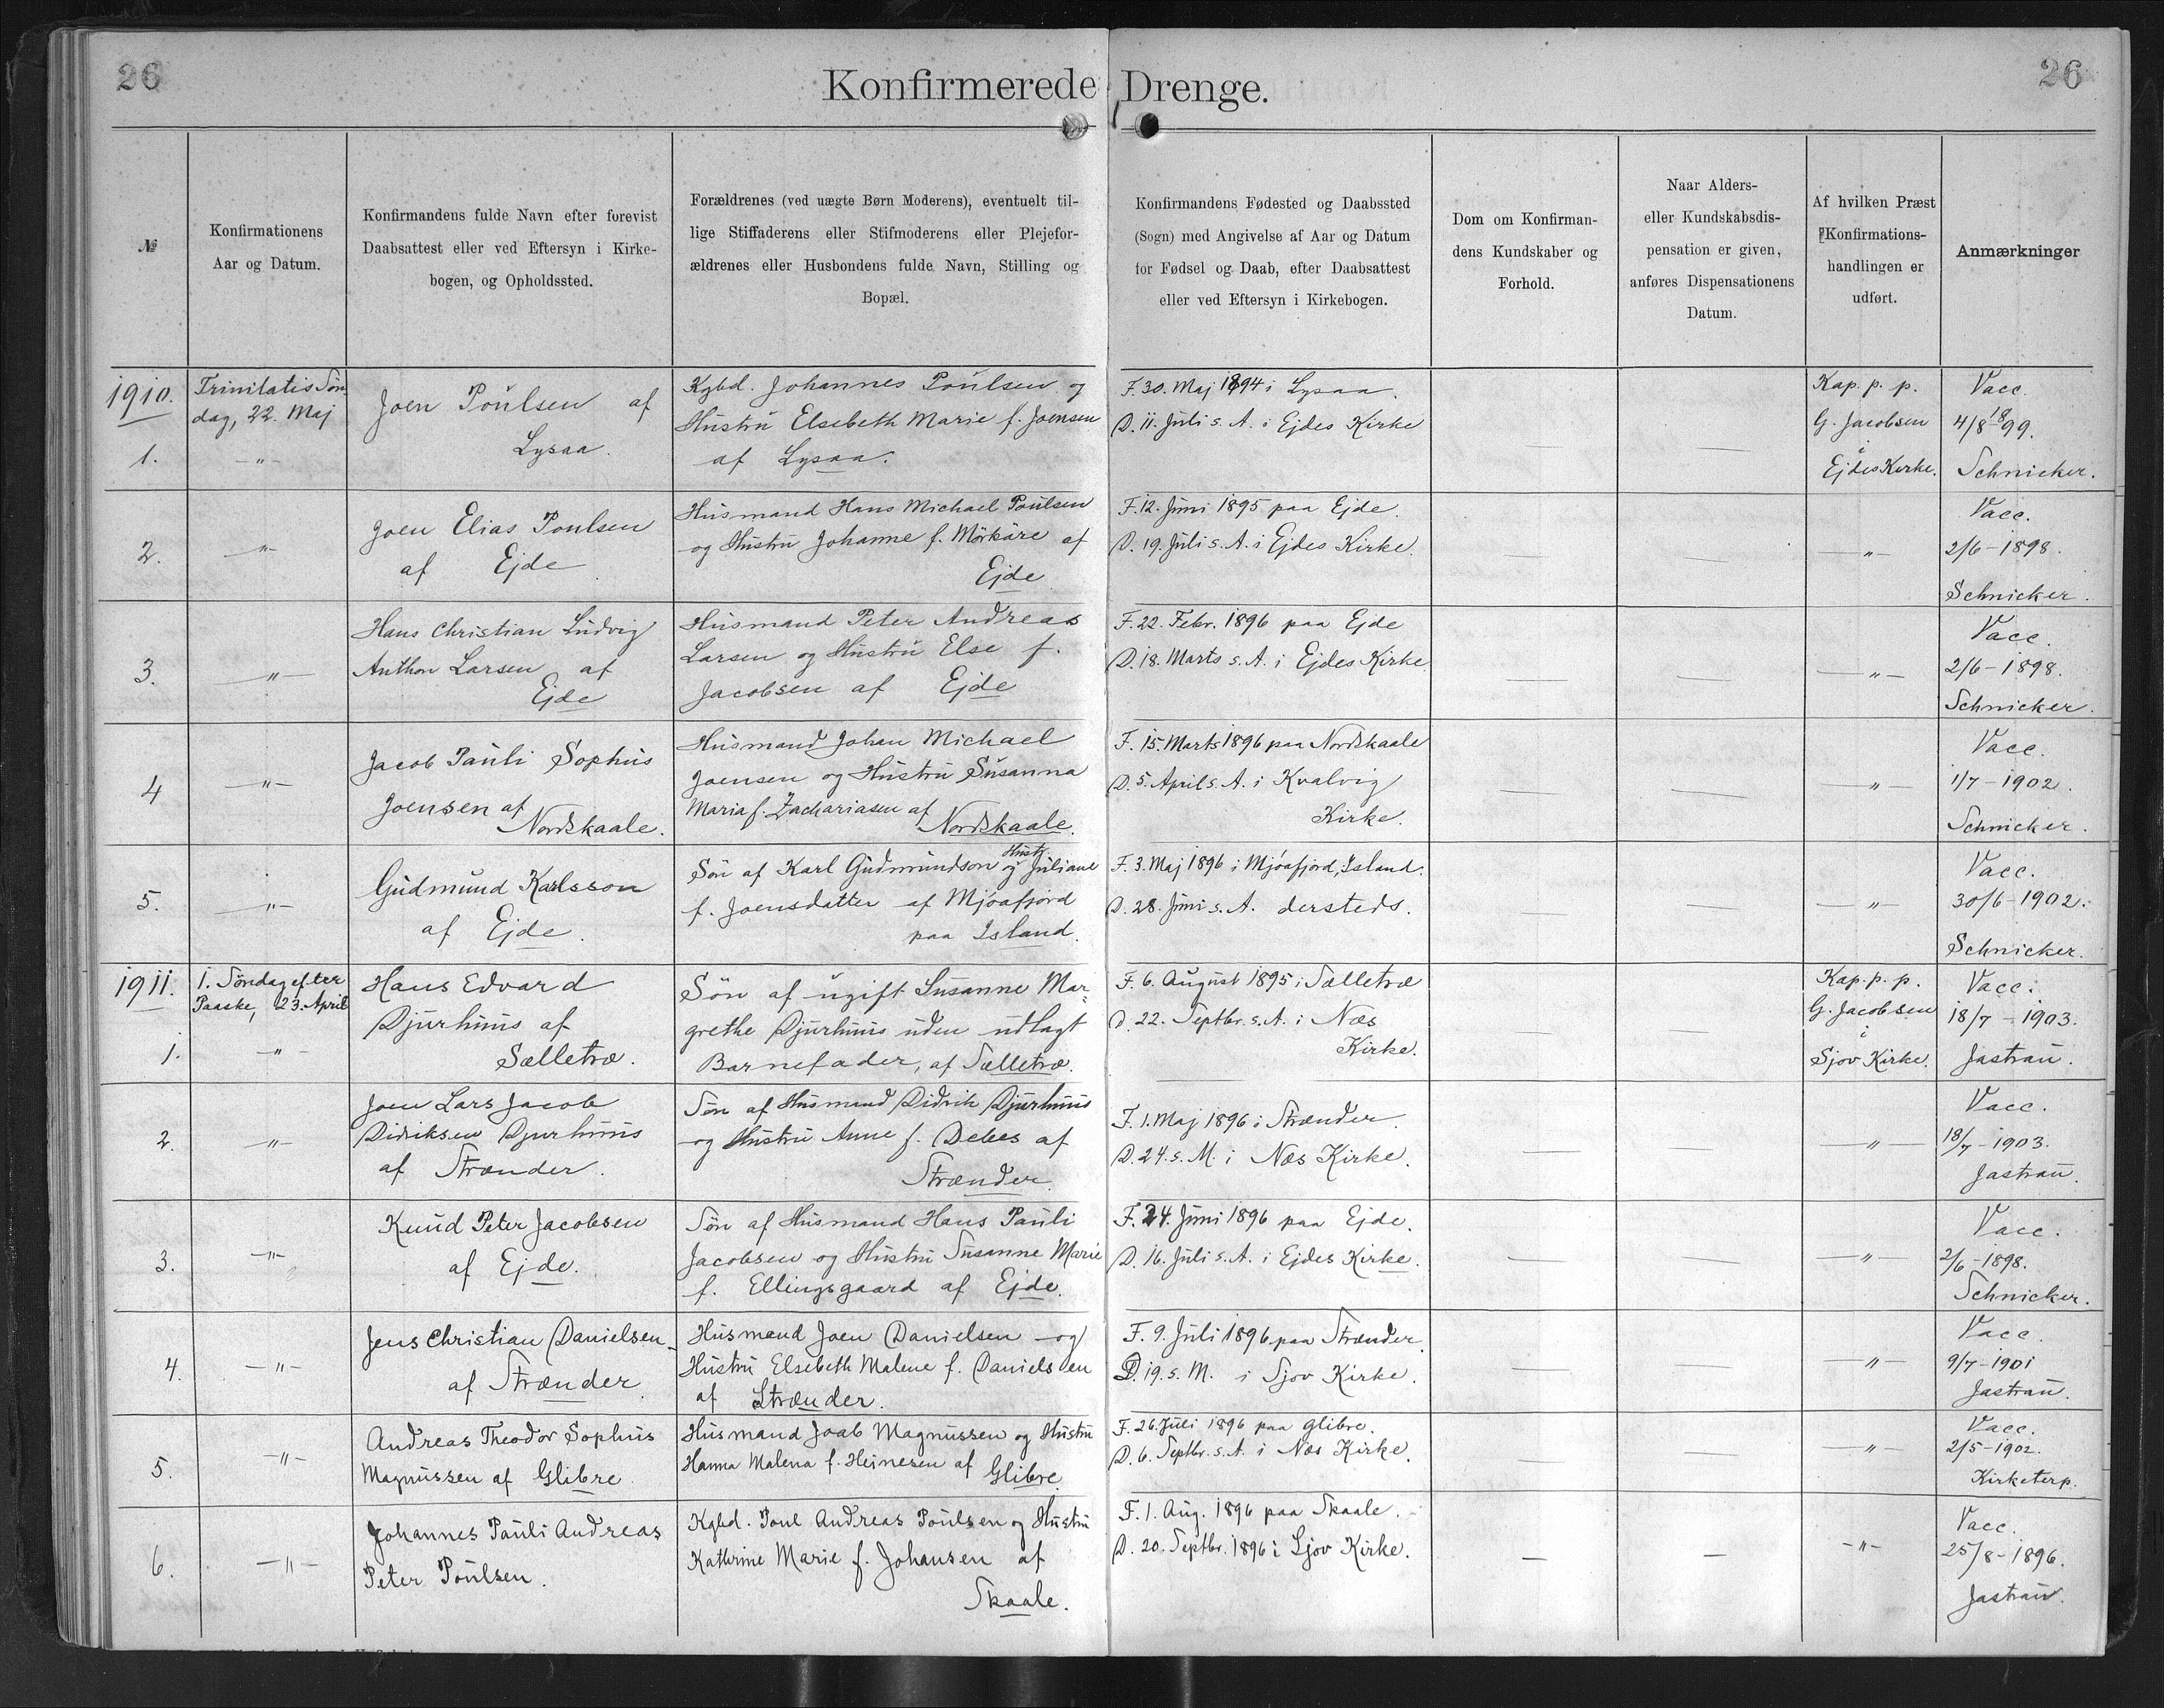 26
Konfirmerede Drenge.
26
№
Konfirmationens
Aar og Datum.
Konfirmandens fulde Navn efter forevist
Daabsattest eller ved Eftersyn i Kirke-
bogen, og Opholdssted.
Forældrenes (ved uægte Børn Moderens), eventuelt til-
lige Stiffaderens eller Stifmoderens eller Plejefor-
ældrenes eller Husbondens fulde Navn, Stilling og
Bopæl.
Konfirmandens Fødested og Daabssted
(Sogn) med Angivelse af Aar og Datum
for Fødsel og Daab, efter Daabsattest
eller ved Eftersyn i Kirkebogen.
Dom om Konfirman-
dens Kundskaber og
Forhold.
Naar Alders-
eller Kundskabsdis-
pensation er given,
anføres Dispensationens
Datum.
Af hvilken Præst
Konfirmations-
handlingen er
udført.
Anmærkninger
1910.
1.
Trinitatis Søn-
dag, 22. Maj
—"—
Joen Poulsen af
Lysaa.
Kgbd. Johannes Poulsen og
Hustru Elsebeth Marie f. Joensen
af Lysaa.
F. 30. Maj 1894 i Lysaa.
D. 11. Juli s. A. i Ejdes Kirke
—
—
Kap. p. p.
G. Jacobsen
i
Ejdes Kirke.
Vacc.
4/8 1899.
Schnicker.
2.
—"—
Joen Elias Poulsen
af Ejde
Husmand Hans Michael Poulsen
og Hustru Johanne f. Mörkäre af
Ejde
F. 12. Juni 1895 paa Ejde.
D. 19. Juli s. A. i Ejdes Kirke.
—
—
—"—
Vacc.
2/6 – 1898.
Schnicker.
3.
—"—
Hans Christian Ludvig
Anthon Larsen af
Ejde
Husmand Peter Andreas
Larsen og Hustru Else f.
Jacobsen af Ejde
F. 22. Febr. 1896 paa Ejde
D. 18. Marts s. A. i Ejdes Kirke
—
—
—"—
Vacc.
2/6 – 1898.
Schnicker.
4
—"—
Jacob Pauli Sophus
Joensen af
Nordskaale.
Husmand Johan Michael
Joensen og Hustru Susanna
Maria f. Zachariasen af
Nordskaale.
F. 15. Marts 1896 paa Nordskaale
D. 5. April s. A. i Kvalvig
Kirke.
—
—
—"—
Vacc.
1/7 – 1902.
Schnicker.
5.
—"—
Gudmund Karlsson
af Ejde.
Søn af Karl Gudmundson og Hust. Juliane
f. Joensdatter af Mjóafjord
paa Island.
F. 3. Maj 1896 i Mjóafjord, Island.
D. 28. Juni s. A. dersteds.
—
—
—"—
Vacc.
30/6 – 1902.
Schnicker.
1911.
1.
1. Søndag efter
Paaske, 23. April
—"—
Hans Edvard
Djurhuus af
Sælletræ.
Søn af ugift Susanne Mar-
grethe Djurhuus uden udlagt
Barnefader, af Sælletræ.
F. 6. August 1895 i Sælletræ
D. 22. Septbr. s. A. i Næs
Kirke.
—
—
Kap. p. p.
G. Jacobsen
i
Sjov Kirke.
Vacc.
18/7 – 1903.
Jastrau.
2.
—"—
Joen Lars Jacob
Didriksen Djurhuus
af Strænder.
Søn af Husmand Didrik Djurhuus
og Hustru Anne f. Debes af
Strænder.
F. 1. Maj 1896 i Strænder.
D. 24. s. M. i Næs Kirke.
—
—
—"—
Vacc.
18/7 – 1903.
Jastrau.
3.
—"—
Knud Peter Jacobsen
af Ejde.
Søn af Husmand Hans Pauli
Jacobsen og Hustru Susanne Marie
f. Ellingsgaard af Ejde.
F. 24. Juni 1896 paa Ejde.
D. 16. Juli s. A. i Ejdes Kirke.
—
—
—"—
Vacc.
2/6 – 1898.
Schnicker.
4.
—"—
Jens Christian Danielsen
af Strænder
Husmand Joen Danielsen og
Hustru Elsebeth Malene f. Danielsen
af Strænder.
F. 9. Juli 1896 paa Strænder.
D. 19. s. M. i Sjov Kirke.
—
—
—"—
Vacc.
9/7 – 1901
Jastrau.
5.
—"—
Andreas Theodor Sophus
Magnussen af Glibre.
Husmand Joab Magnussen og Hustru
Hanna Malena f. Heinesen af Glibre.
F. 26. Juli 1896 paa Glibre.
D. 6. Septbr. s. A. i Næs Kirke.
—
—
—"—
Vacc.
2/5 – 1902.
Kirketerp.
6.
—"—
Johannes Pauli Andreas
Peter Poulsen.
Kgbd. Poul Andreas Poulsen og Hustru
Kathrine Marie f. Johansen af
Skaale.
F. 1. Aug. 1896 paa Skaale.
D. 20. Septbr. 1896 i Ljov Kirke.
—
—
—"—
Vacc.
25/8 – 1896.
Jastrau.